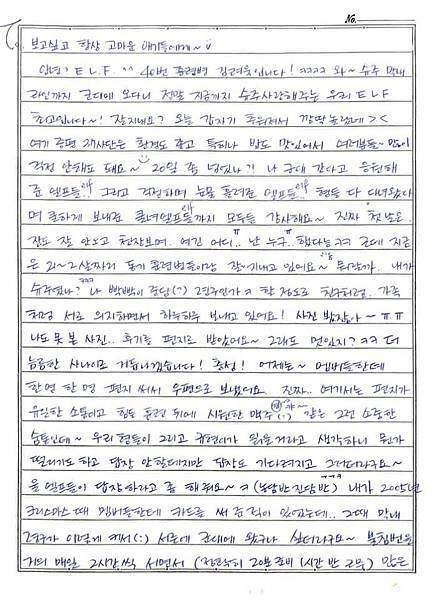 No.
To. 보고싶고 항상 고마운 애기들에게~
안녕? E.L.F. ^^ 41번 훈련병 김려욱입니다! ㅋㅋㅋㅋ 와~ 슈주 막내
라인까지 군대에 오다니 정말 지금까지 슈주사랑해주는 우리 E.L.F
최고입니다~! 잘지내요? 오늘 갑자기 추워져서 깜짝 놀랐네 ><
여기 증평 재사단은 환경도 좋고 특히나 밥도 맛있어서 여러분들~ 많이
걱정 안해도 돼요~ 20일 좀 넘었나?! 나 군대 간다고 응원해
준 엘프들! 그리고 걱정하며 눈물 흘려준 엘프들. 형들 다 다녀왔다
며 쿨하게 보내준 쿨녀엘프들까지 모두들 감사해요~ 진짜 첫 날은
잠도 잘 안오고 천장보며.. 여긴 어디.. 난 누구.. 했다는ㅋㅋ 근데 지금
은 21~22살짜리 동기 훈련병들이랑 잘~지내고 있어요~ 뭐랄까.. 내가
슈주였나? ㅋㅋㅋ 나 빡빡이 주딩(?) 2명주인가ㅋ 할 정도로 친구처럼. 가족
처럼 서로 의지하면서 하루하루 보내고 있어요! 사진 봤잖아~ ㅠㅠ
나도 못 본 사진.. 후기를 편지로 받았어요~ 그래도 멋있지? ㅋㅋ 더
늠름한 사나이로 거듭나겠습니다! 충성! 어제는~ 멤버들한테
한명 한명 편지 써서 우편으로 보냈어요. 진짜.. 여기서는 편지가
유일한 소통이고 힘든 훈련 뒤에 시원한 맥주(?) 같은 그런 소중한
숨통인데~ 우리 형들이 그리고 규현이가 읽을거라고 생각하니 뭔가
떨리기도 하고 답장 안할테지만 답장도 기다려지고 그러더라구요~
울 엘프들이 답장하라고 좀 해줘요~ㅋ (농담반진담반) 내가 2005년
크리스마스 때 멤버들한테 카드를 써 준적이 있었는데.. 그때 막내
려욱가 이렇게 커서(:) 서른에 군대에 왔구나 싶더라구요~ 불침번을
거의 매일 2시간씩 서면서 (정확히 20분준비 1시간 반 근무) 많은